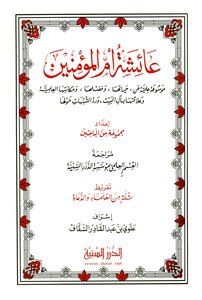 عائشة أم المؤمنين
موسوعة علمية عن حياتها ، وفضلها ، ومكانتها العلمية
وعلاقتها بآل البيت ، ورد الشبهات حولها
إعداد
مجموعة من الباحثين
مراجعة
القسم العلمي بمؤسسة الدرر السنية
تقريظ
ثلة من العلماء والدعاة
إشراف
علوي بن عبد القادر السقاف
الدرر السنية